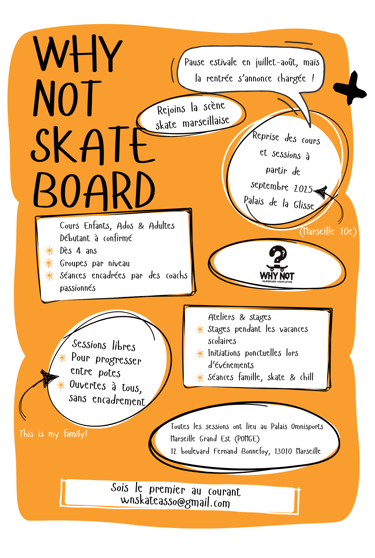 WHY
NOT
SKATE
BOARD
Pause estivale en juillet-août, mais
la rentrée s'annonce chargée !
Rejoins la scène
skate marseillaise
Reprise des cours
et sessions à
partir de
septembre 2025
Palais de la Glisse
(Marseille 10e)
Cours Enfants, Ados & Adultes
Débutant à confirmé
Dès 4 ans
Groupes par niveau
Séances encadrées par des coachs
passionnés
WHY NOT
Ateliers & stages
Stages pendant les vacances
scolaires
Initiations ponctuelles lors
d'événements
Séances famille, skate & chill
Sessions libres
Pour progresser
entre potes
Ouvertes à tous,
sans encadrement
This is my family!
Toutes les sessions ont lieu au Palais Omnisports
Marseille Grand Est (POMGE)
12 boulevard Fernand Bonnefoy, 13010 Marseille
Sois le premier au courant
wnskateasso@gmail.com